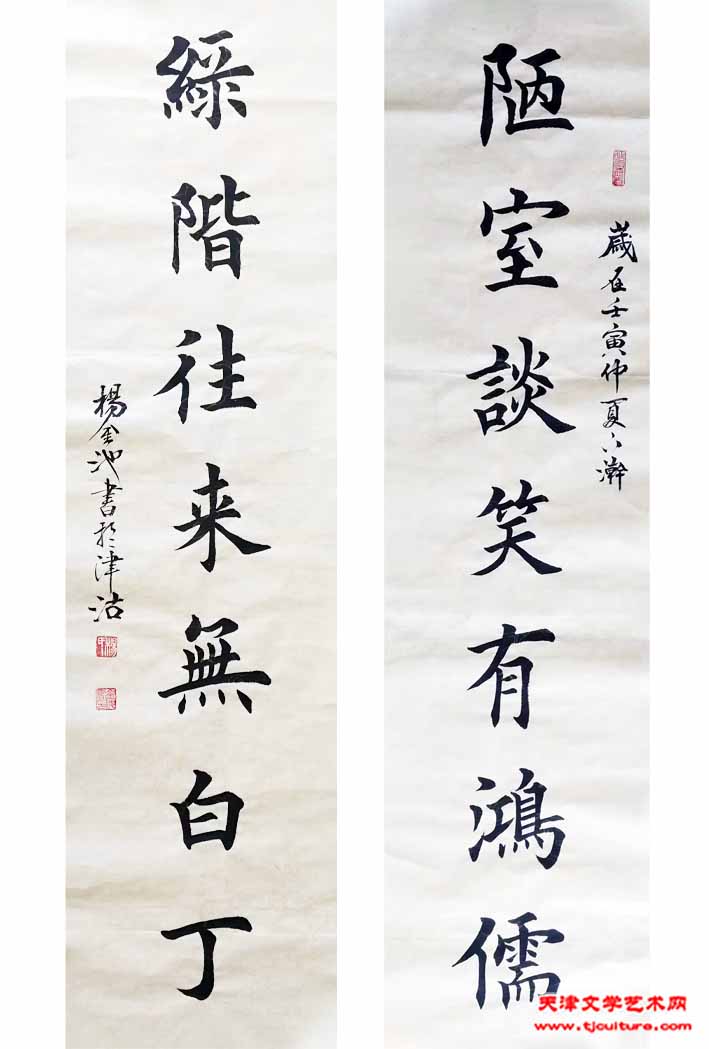 陋室談笑有鴻儒
歳在壬寅仲夏下澣
綠階往来無白丁
楊金池書於津沽
天津文学艺术网
www.tjculture.com